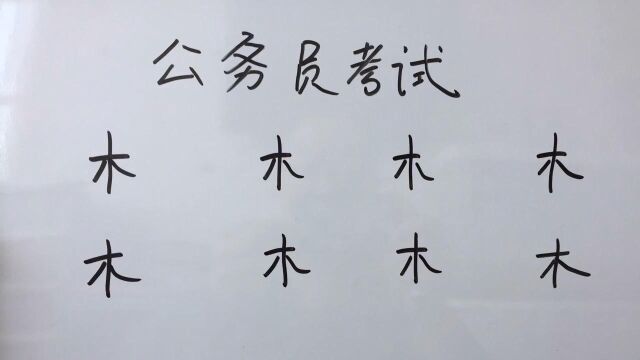 公务员考试
木 木 木 木
木 木 木 木